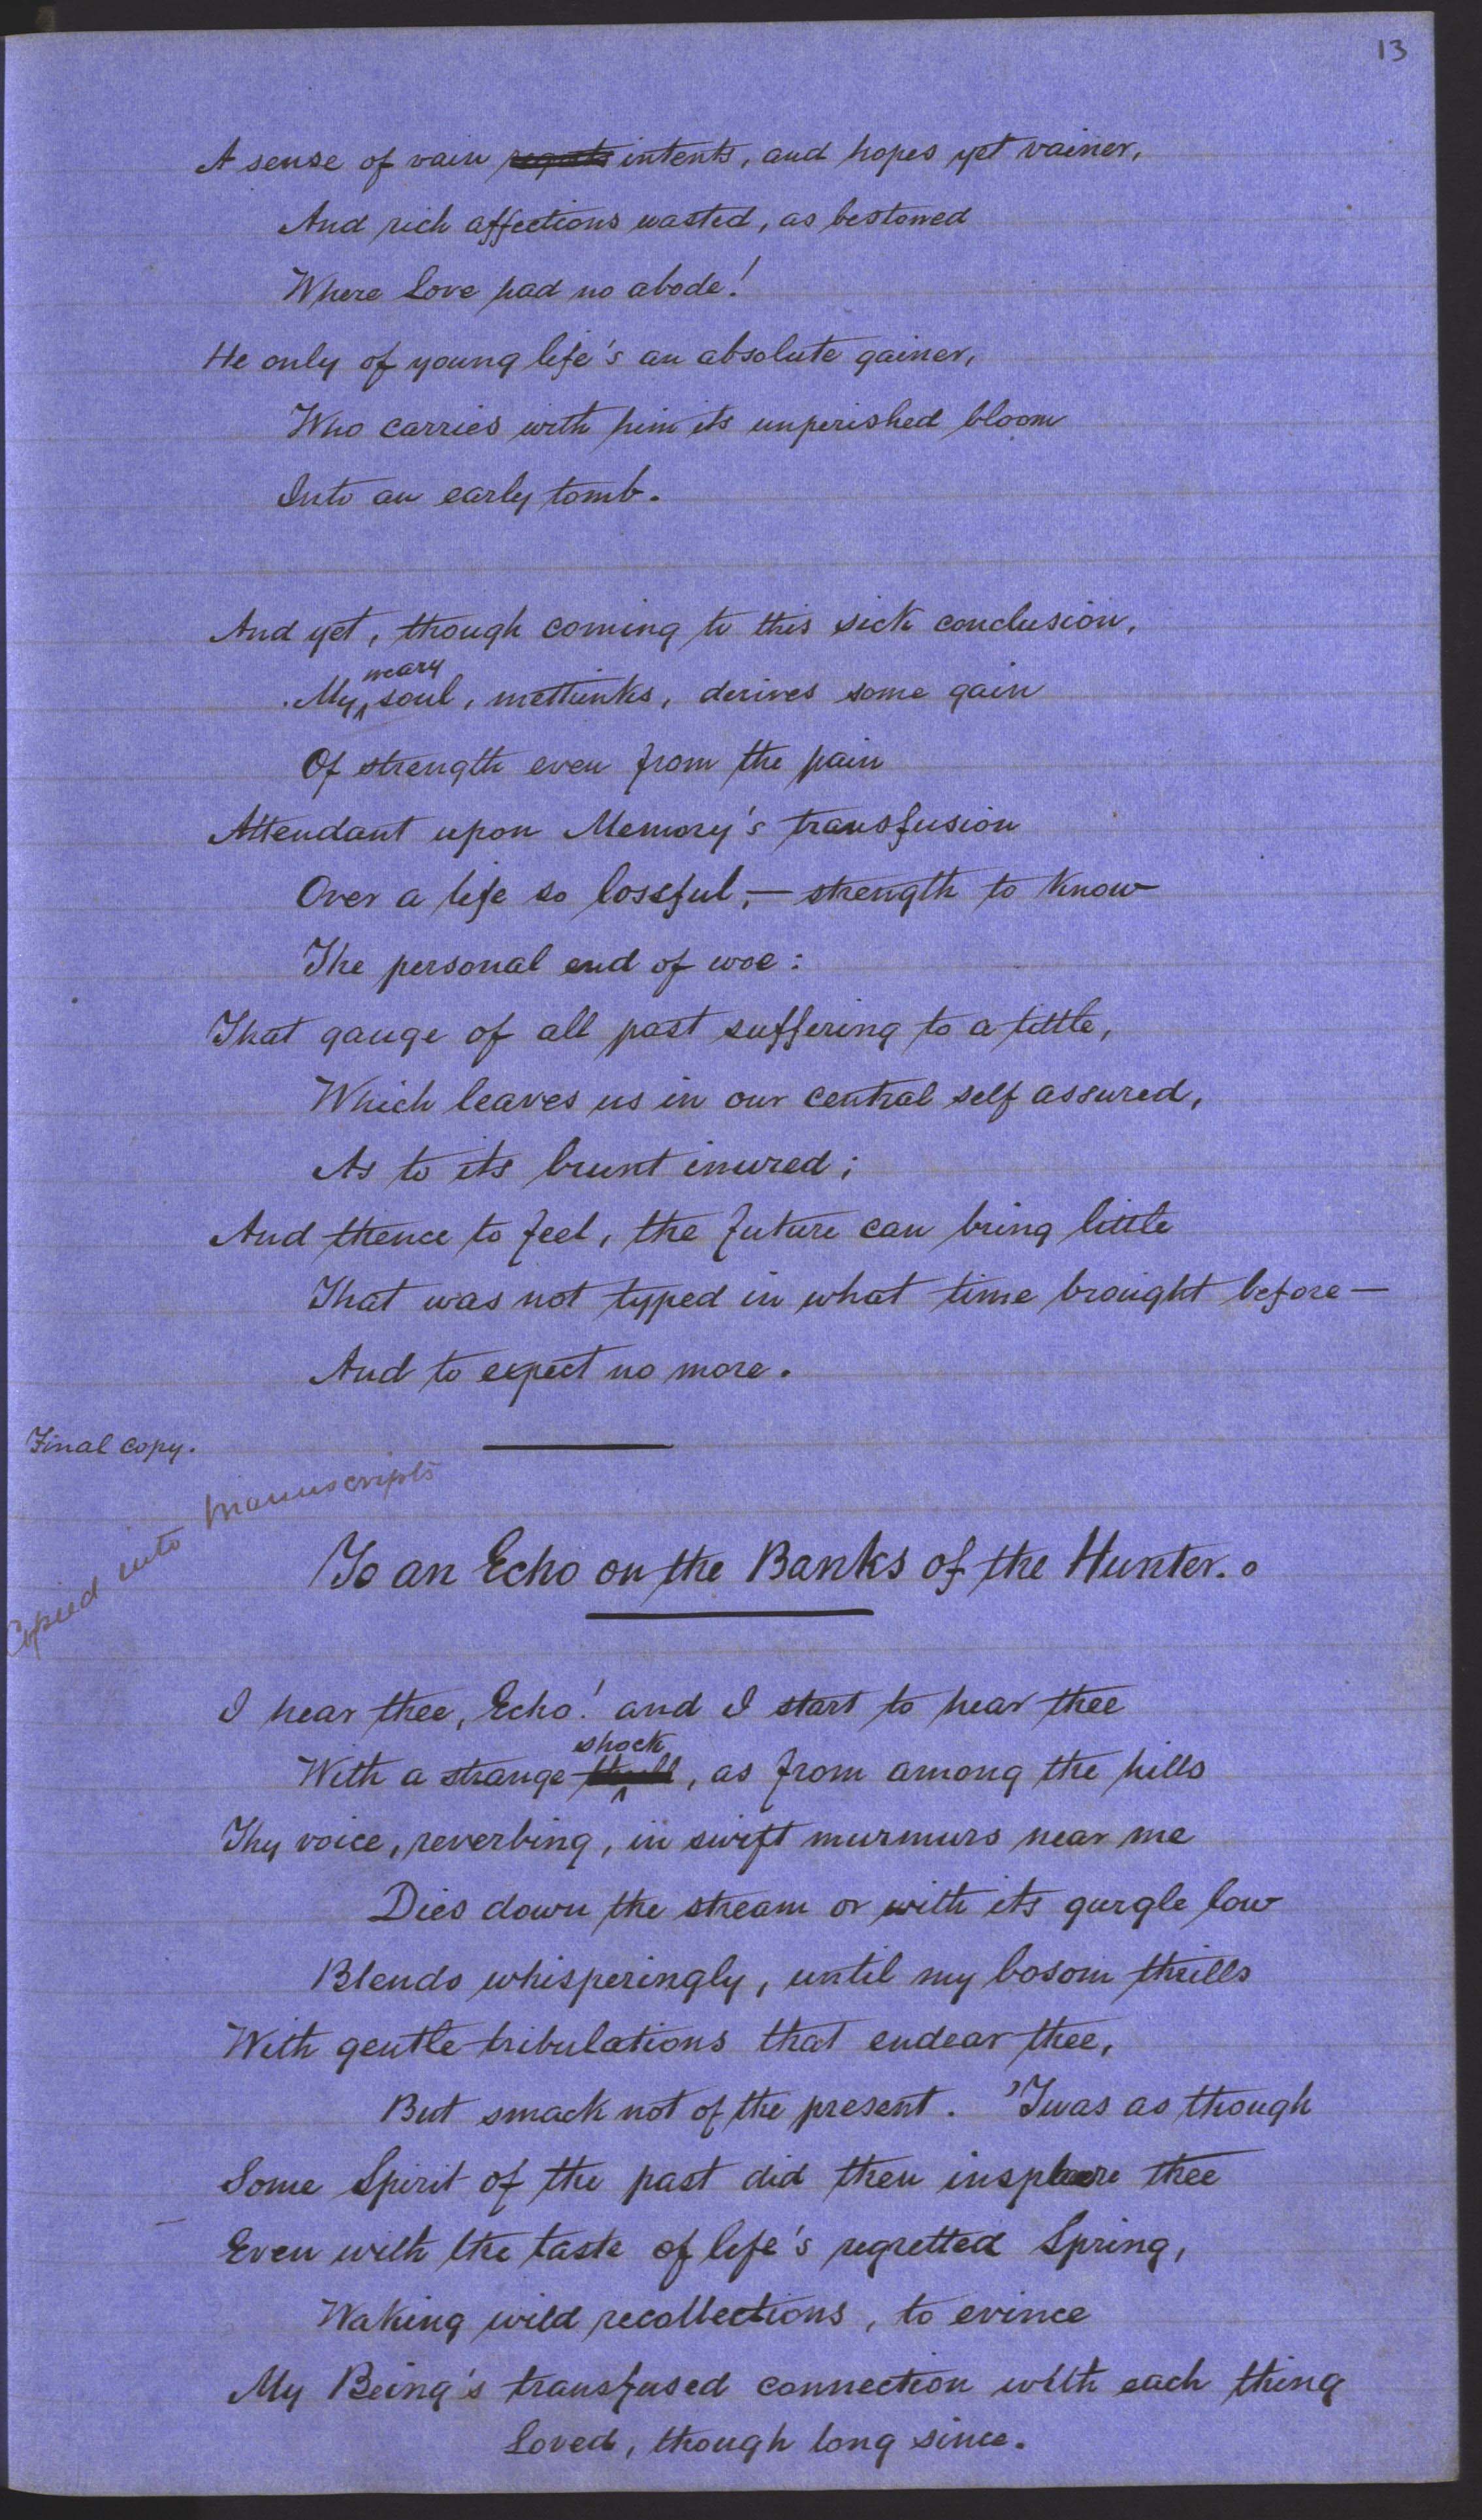 13
A sense of vain intents, and hopes yet vainer,
And rich affections wasted, as bestowed
Where Love had no abode!
He only of young life's an absolute gainer,
Who carries with him its unperished bloom
Into an early tomb.
And yet, though coming to this sick conclusion,
My weary soul, methinks, derives some gain
Of strength even from the pain
Attendant upon Memory's transfusion
Over a life so lossful,— strength to know
The personal end of woe:
That gauge of all past suffering to a tittle,
Which leaves us in our central self assured,
As to its brunt inured;
And thence to feel, the future can bring little
That was not typed in what time brought before—
And to expect no more.
Final copy.
Copied into Manuscripts
To an Echo on the Banks of the Hunter.
I hear thee, Echo! and I start to hear thee
With a strange shock, as from among the hills
Thy voice, reverbing, in swift murmurs near me
Dies down the stream or with its gurgle low
Blends whisperingly, until my bosom thrills
With gentle tribulations that endear thee,
But smack not of the present. 'Twas as though
Some Spirit of the past did then insphere thee
Even with the taste of life's regretted Spring,
Waking wild recollections, to evince
My Being's transfused connection with each thing
Loved, though long since.